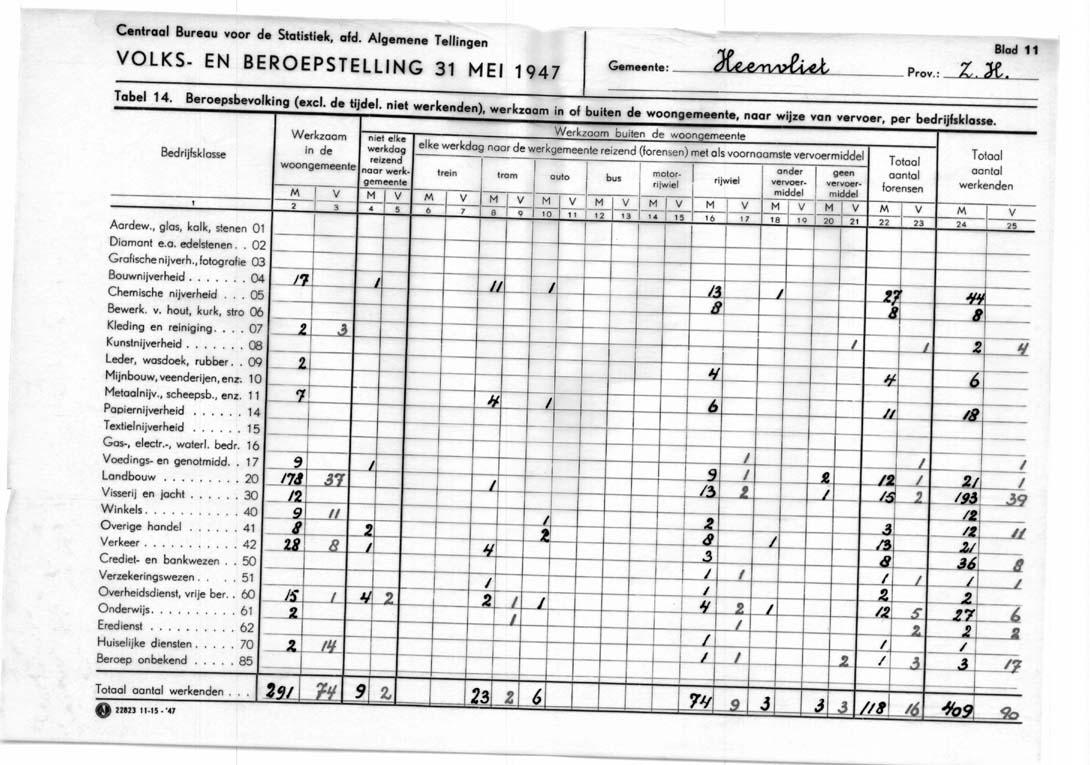 Centraal Bureau voor de Statistiek, afd. Algemene Tellingen
VOLKS- EN BEROEPSTELLING 31 MEI 1947
Gemeente: Heenvliet Prov.: Z. H.
Blad 11
Tabel 14. Beroepsbevolking (excl. de tijdel. niet werkenden), werkzaam in of buiten de woongemeente, naar wijze van vervoer, per bedrijfsklasse.
Bedrijfsklasse
Werkzaam
in de
woongemeente
Werkzaam buiten de woongemeente
niet elke
werkdag
reizend
naar werk-
gemeente
elke werkdag naar de werkgemeente reizend (forensen) met als voornaamste vervoermiddel
trein
tram
auto
bus
motor-
rijwiel
rijwiel
ander
vervoer-
middel
geen
vervoer-
middel
Totaal
aantal
forensen
Totaal
aantal
werkenden
M V M V M V M V M V M V M V M V M V M V M V M V
1 2 3 4 5 6 7 8 9 10 11 12 13 14 15 16 17 18 19 20 21 22 23 24 25
Aardew., glas, kalk, stenen 01
Diamant e.a. edelstenen . . 02
Grafische nijverh., fotografie 03
Bouwnijverheid . . . . . . . 04 17 1 11 1 13 1 27 44
Chemische nijverheid . . . 05 8 8 8
Bewerk. v. hout, kurk, stro 06
Kleding en reiniging. . . . 07 2 3 1 1 2 4
Kunstnijverheid . . . . . . . 08
Leder, wasdoek, rubber. . 09 2 4 4 6
Mijnbouw, veenderijen, enz. 10
Metaalnijv., scheepsb., enz. 11 7 4 1 6 11 18
Papiernijverheid . . . . . . 14
Textielnijverheid . . . . . . 15
Gas-, electr.-, waterl. bedr. 16 1 1 1
Voedings- en genotmidd. . 17 9 1 9 1 2 12 1 21 1
Landbouw . . . . . . . . . 20 178 37 1 13 2 1 15 2 193 39
Visserij en jacht . . . . . . 30 12 12
Winkels . . . . . . . . . . . 40 9 11 1 2 3 12 11
Overige handel . . . . . . 41 8 2 2 8 1 13 21
Verkeer . . . . . . . . . . . 42 28 8 1 4 3 8 36 8
Crediet- en bankwezen . . 50 1 1 1 1 1 1
Verzekeringswezen . . . . 51 1 1 2 2
Overheidsdienst, vrije ber. . 60 15 1 4 2 2 1 1 4 2 1 12 5 27 6
Onderwijs. . . . . . . . . . 61 2 1 1 2 2 2
Eredienst . . . . . . . . . . 62 1 1 1
Huiselijke diensten . . . . . 70 2 14 1 1 2 1 3 3 17
Beroep onbekend . . . . . 85
Totaal aantal werkenden . . . 291 74 9 2 23 2 6 74 9 3 3 3 118 16 409 90
22823 11-15-'47